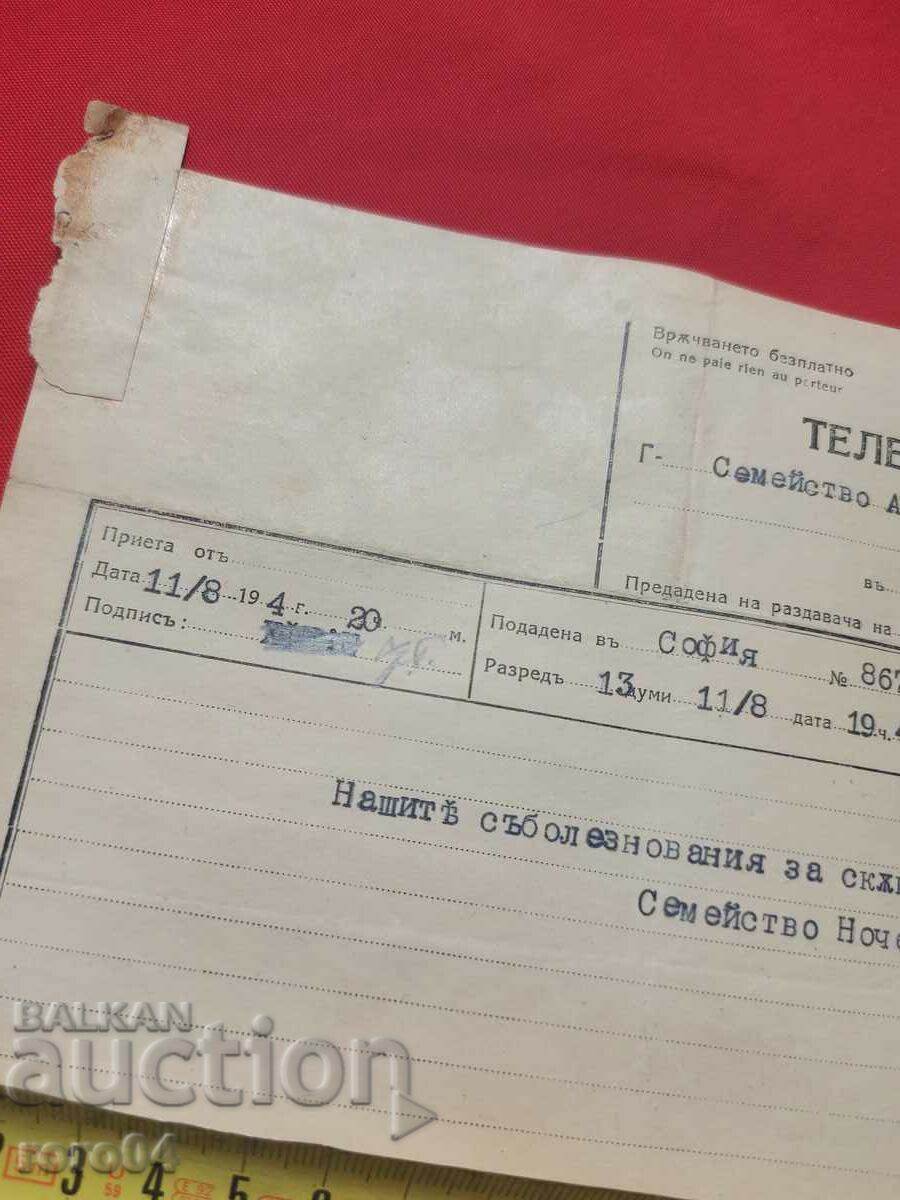 Врѫчването безплатно
On ne paie rien au porteur
ТЕЛЕ
Г- Семейство А
въ
Предадена на раздавача на
Приета отъ
Дата 11/8 194 4 г. 20 м.
Подписъ:
Подадена въ София № 867
Разредъ 13 думи 11/8 дата 19 ч.
Нашитѣ съболезнования за скѫ
Семейство Ноче
BALKAN
auction
roro04
3 4 5
59